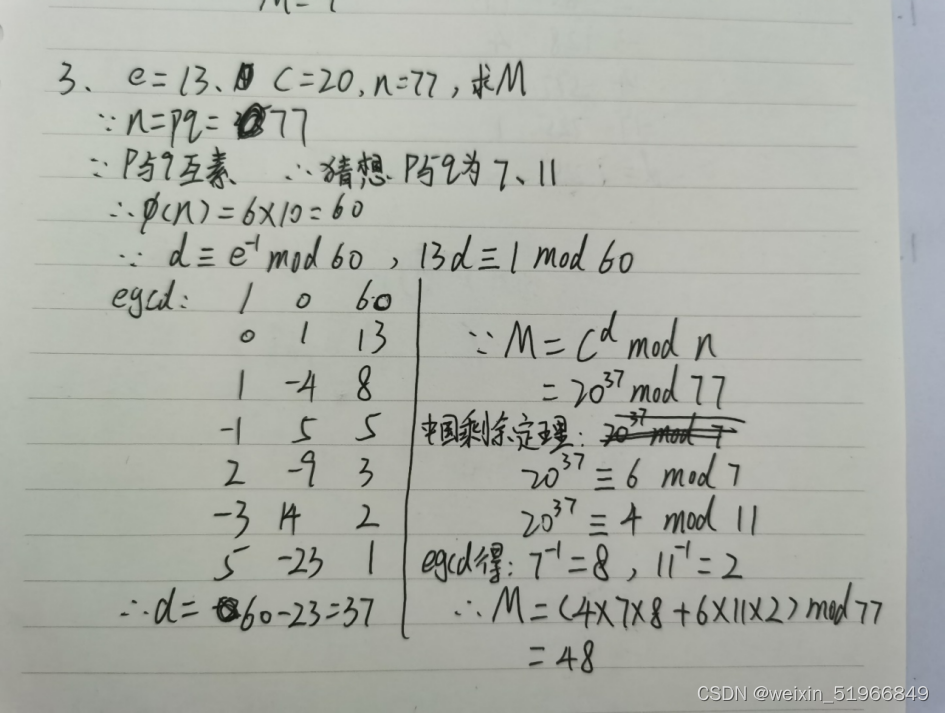 M=1
3、 e=13、 C=20, n=77, 求M
∵n=pq=77
∵P与q互素 ∴猜想 P与q为 7、11
∴φ(n)=6×10=60
∵ d≡e⁻¹ mod 60 , 13d≡1 mod 60
egcd: 1 0 60
0 1 13
1 -4 8
-1 5 5
2 -9 3
-3 14 2
5 -23 1
∴d=60-23=37
∵M=C^d mod n
=20³⁷ mod 77
中国剩余定理: 20³⁷ mod 7
20³⁷≡6 mod 7
20³⁷≡4 mod 11
egcd得: 7⁻¹=8 , 11⁻¹=2
∴M=(4×7×8+6×11×2) mod 77
=48
CSDN @weixin_51966849